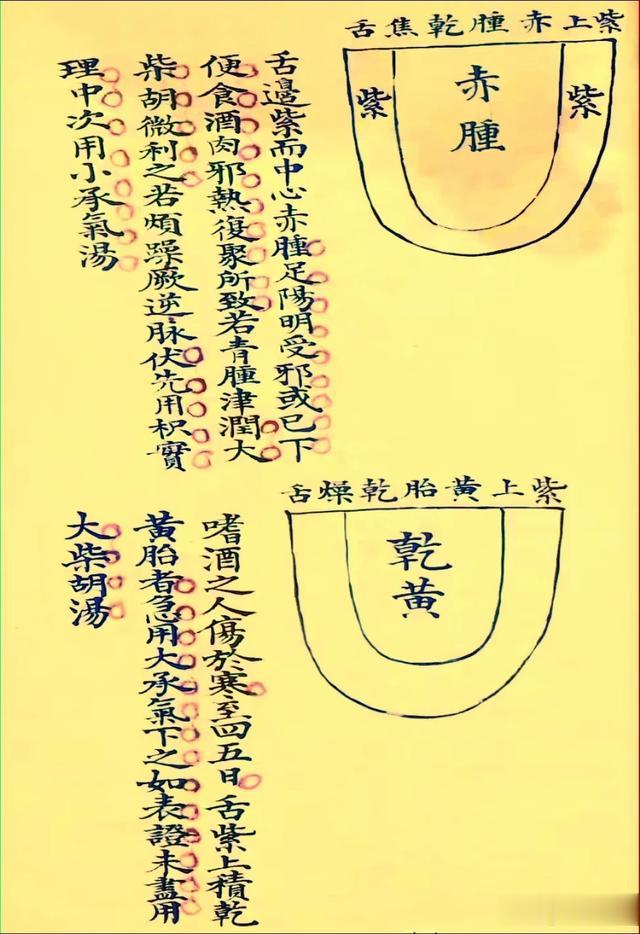 紫上赤腫乾焦舌
紫
赤腫
紫
舌邉紫而中心赤腫足陽明受邪或已下
便食酒肉邪熱復聚所致若青腫津潤大
柴胡微利之若煩躁厥逆脉伏先用枳實
理中次用小承氣湯
紫上黃胎乾燥舌
乾黃
嗜酒之人傷於寒至四五日舌紫上積乾
黃胎者急用大承氣下之如表證未盡用
大柴胡湯